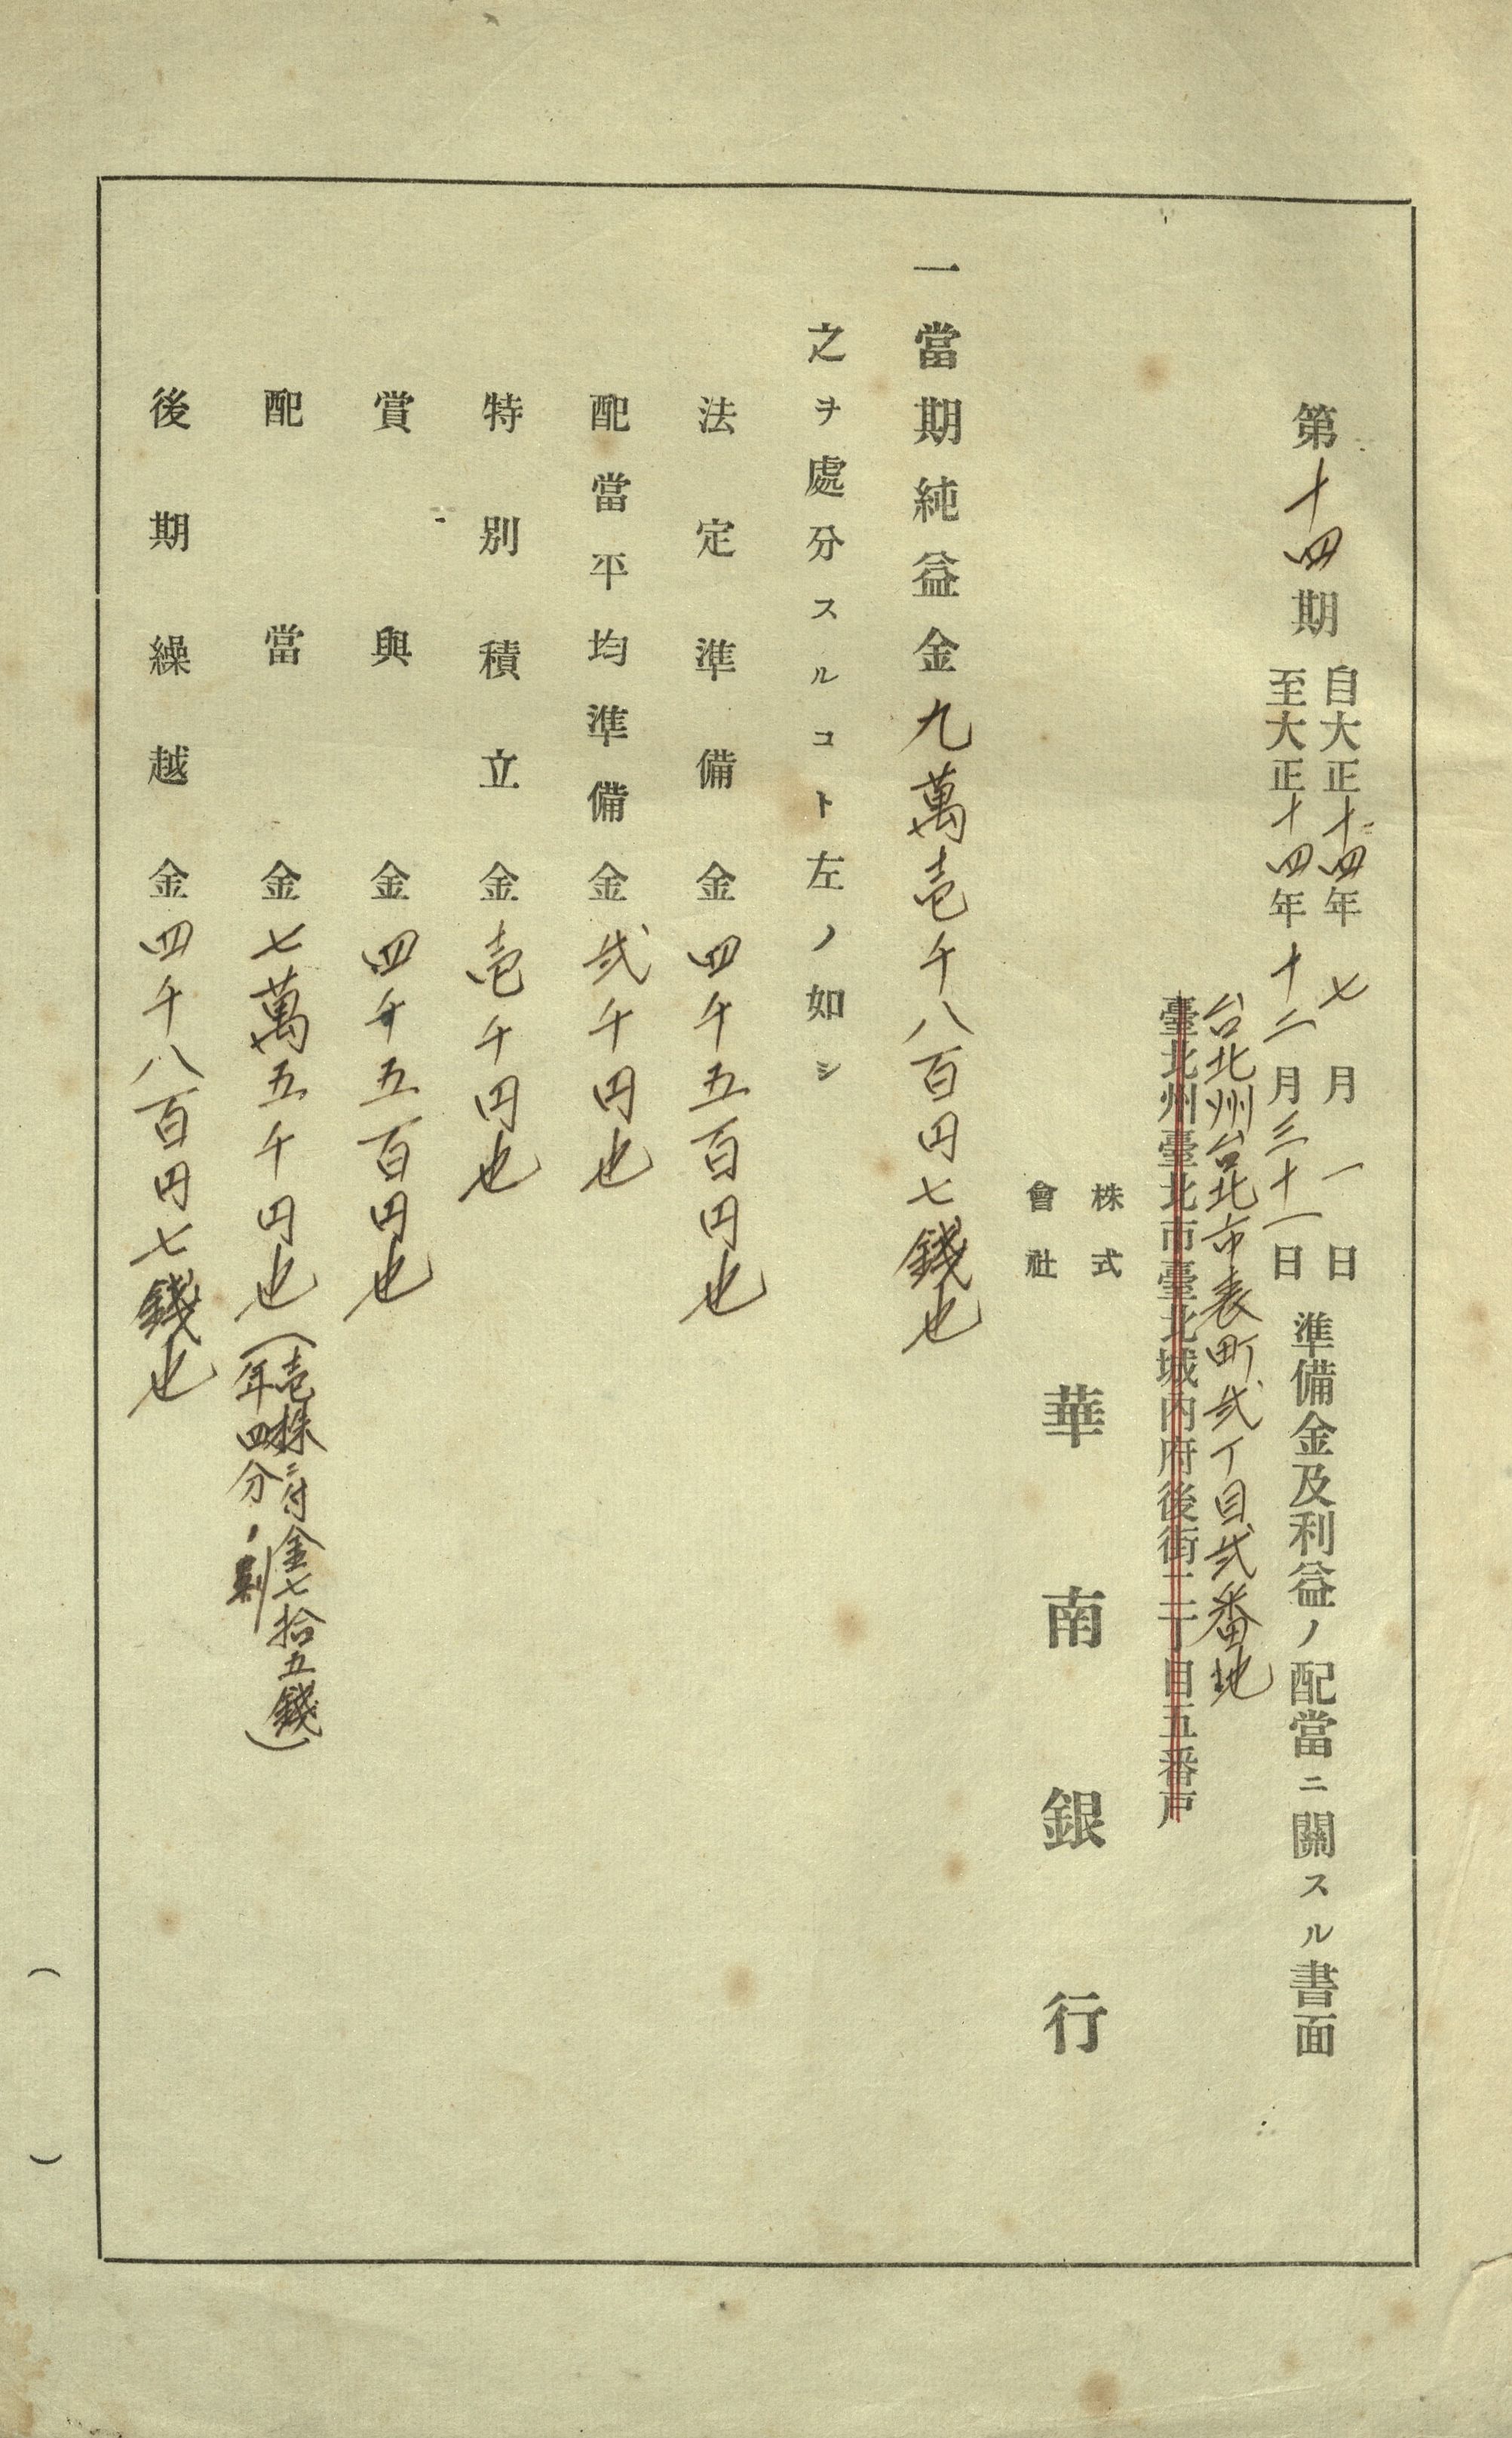 第十四期 自大正十四年七月一日 至大正十四年十二月三十一日 準備金及利益ノ配當ニ關スル書面
台北州台北市表町弐丁目弐番地
臺北州臺北市臺北城內府後街二丁目五番戸
株式會社 華南銀行
一當期純益金九萬壱千八百円七錢也
之ヲ處分スルコト左ノ如シ
法定準備金四千五百円也
配當平均準備金弐千円也
特別積立金壱千円也
賞與金四千五百円也
配當金七萬五千円也(壱株ニ付金七拾五錢
年四分ノ割)
後期繰越金四千八百円七錢也
( )